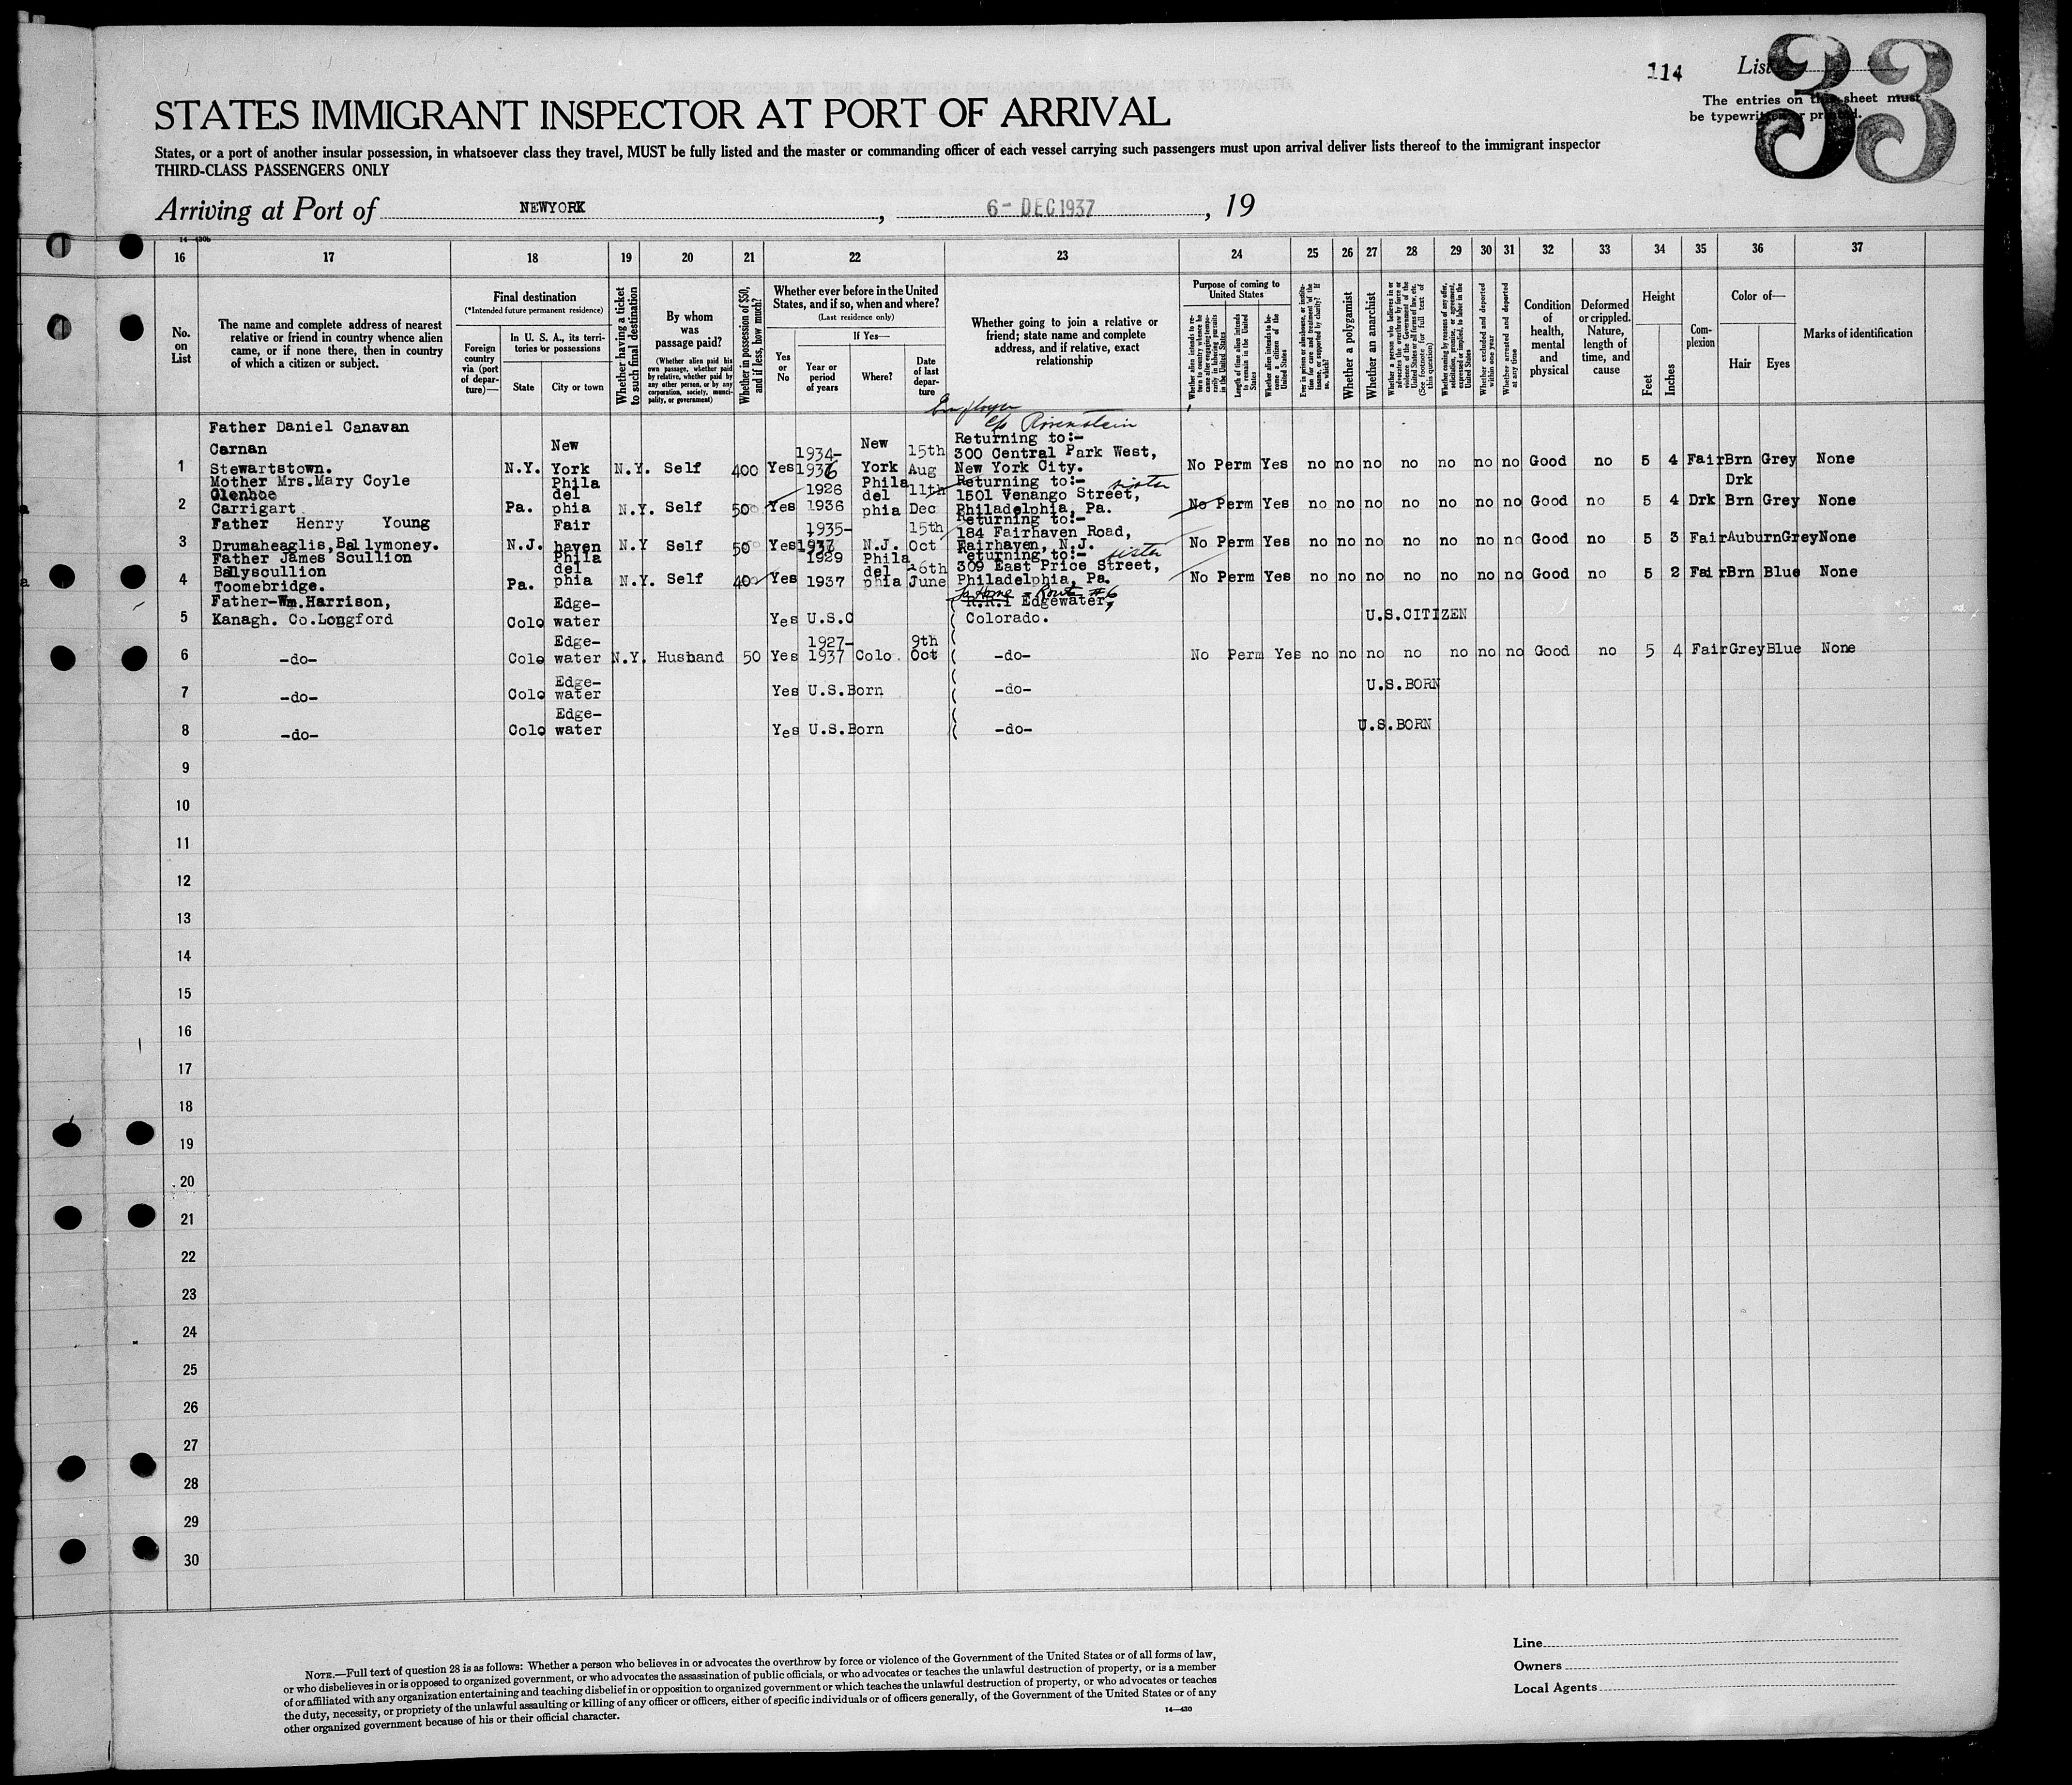 114 List
33
The entries on this sheet must
be typewritten or printed.
STATES IMMIGRANT INSPECTOR AT PORT OF ARRIVAL
States, or a port of another insular possession, in whatsoever class they travel, MUST be fully listed and the master or commanding officer of each vessel carrying such passengers must upon arrival deliver lists thereof to the immigrant inspector
THIRD-CLASS PASSENGERS ONLY
Arriving at Port of NEWYORK, 6- DEC 1937, 19
14-430b
16 17 18 19 20 21 22 23 24 25 26 27 28 29 30 31 32 33 34 35 36 37
No. on List
The name and complete address of nearest relative or friend in country whence alien came, or if none there, then in country of which a citizen or subject.
Final destination
(*Intended future permanent residence)
Foreign country via (port of departure)—
In U. S. A., its territories or possessions
State
City or town
Whether having a ticket to such final destination
By whom was passage paid?
(Whether alien paid his own passage, whether paid by relative, whether paid by any other person, or by any corporation, society, municipality, or government)
Whether in possession of $50, and if less, how much?
Whether ever before in the United States, and if so, when and where?
(Last residence only)
Yes or No
If Yes—
Year or period of years
Where?
Date of last departure
Whether going to join a relative or friend; state name and complete address, and if relative, exact relationship
Purpose of coming to United States
Length of time alien intends to remain in the United States
Whether alien intends to become a citizen of the United States
Whether a polygamist
Whether an anarchist
Whether excluded and deported within one year
Whether arrested and deported at any time
Condition of health, mental and physical
Deformed or crippled. Nature, length of time, and cause
Height
Feet
Inches
Complexion
Color of—
Hair
Eyes
Marks of identification
Employer
c/o Rosenstein
Father Daniel Canavan New 1934- New 15th Returning to:-
Carnan 300 Central Park West,
1 Stewartstown. N.Y. York N.Y. Self 400 Yes 1936 York Aug New York City. No Perm Yes no no no no no no no Good no 5 4 Fair Brn Grey None
Mother Mrs.Mary Coyle Phila 1926 Phila 11th Returning to:- sister Drk
Glenhoe del del 1501 Venango Street,
2 Carrigart Pa. phia N.Y. Self 50 Yes 1936 phia Dec Philadelphia, Pa. No Perm Yes no no no no no no no Good no 5 4 Drk Brn Grey None
Father Henry Young Fair 1935- 15th Returning to:-
184 Fairhaven Road,
3 Drumaheaglis,Ballymoney. N.J. haven N.Y Self 50 Yes 1937 N.J. Oct Fairhaven, N.J. No Perm Yes no no no no no no no Good no 5 3 Fair Auburn Grey None
Father James Scullion Phila 1929 Phila Returning to:- sister
Ballyscullion del del 16th 309 East Price Street,
4 Toomebridge. Pa. phia N.Y. Self 40 Yes 1937 phia June Philadelphia, Pa. No Perm Yes no no no no no no no Good no 5 2 Fair Brn Blue None
To Home - Route #6
Father-Wm.Harrison, Edge- R.R.1 Edgewater,
5 Kanagh. Co.Longford Colo water Yes U.S.C ( Colorado. U.S.CITIZEN
Edge- 1927- 9th
6 -do- Colo water N.Y. Husband 50 Yes 1937 Colo. Oct ( -do- No Perm Yes no no no no no no no Good no 5 4 Fair Grey Blue None
Edge-
7 -do- Colo water Yes U.S.Born ( -do- U.S.BORN
Edge-
8 -do- Colo water Yes U.S.Born ( -do- U.S.BORN
9
10
11
12
13
14
15
16
17
18
19
20
21
22
23
24
25
26
27
28
29
30
NOTE.—Full text of question 28 is as follows: Whether a person who believes in or advocates the overthrow by force or violence of the Government of the United States or of all forms of law,
or who disbelieves in or is opposed to organized government, or who advocates the assassination of public officials, or who advocates or teaches the unlawful destruction of property, or is a member
of or affiliated with any organization entertaining and teaching disbelief in or opposition to organized government or which teaches the unlawful destruction of property, or who advocates or teaches
the duty, necessity, or propriety of the unlawful assaulting or killing of any officer or officers, either of specific individuals or of officers generally, of the Government of the United States or of any
other organized government because of his or their official character.
14-430
Line
Owners
Local Agents